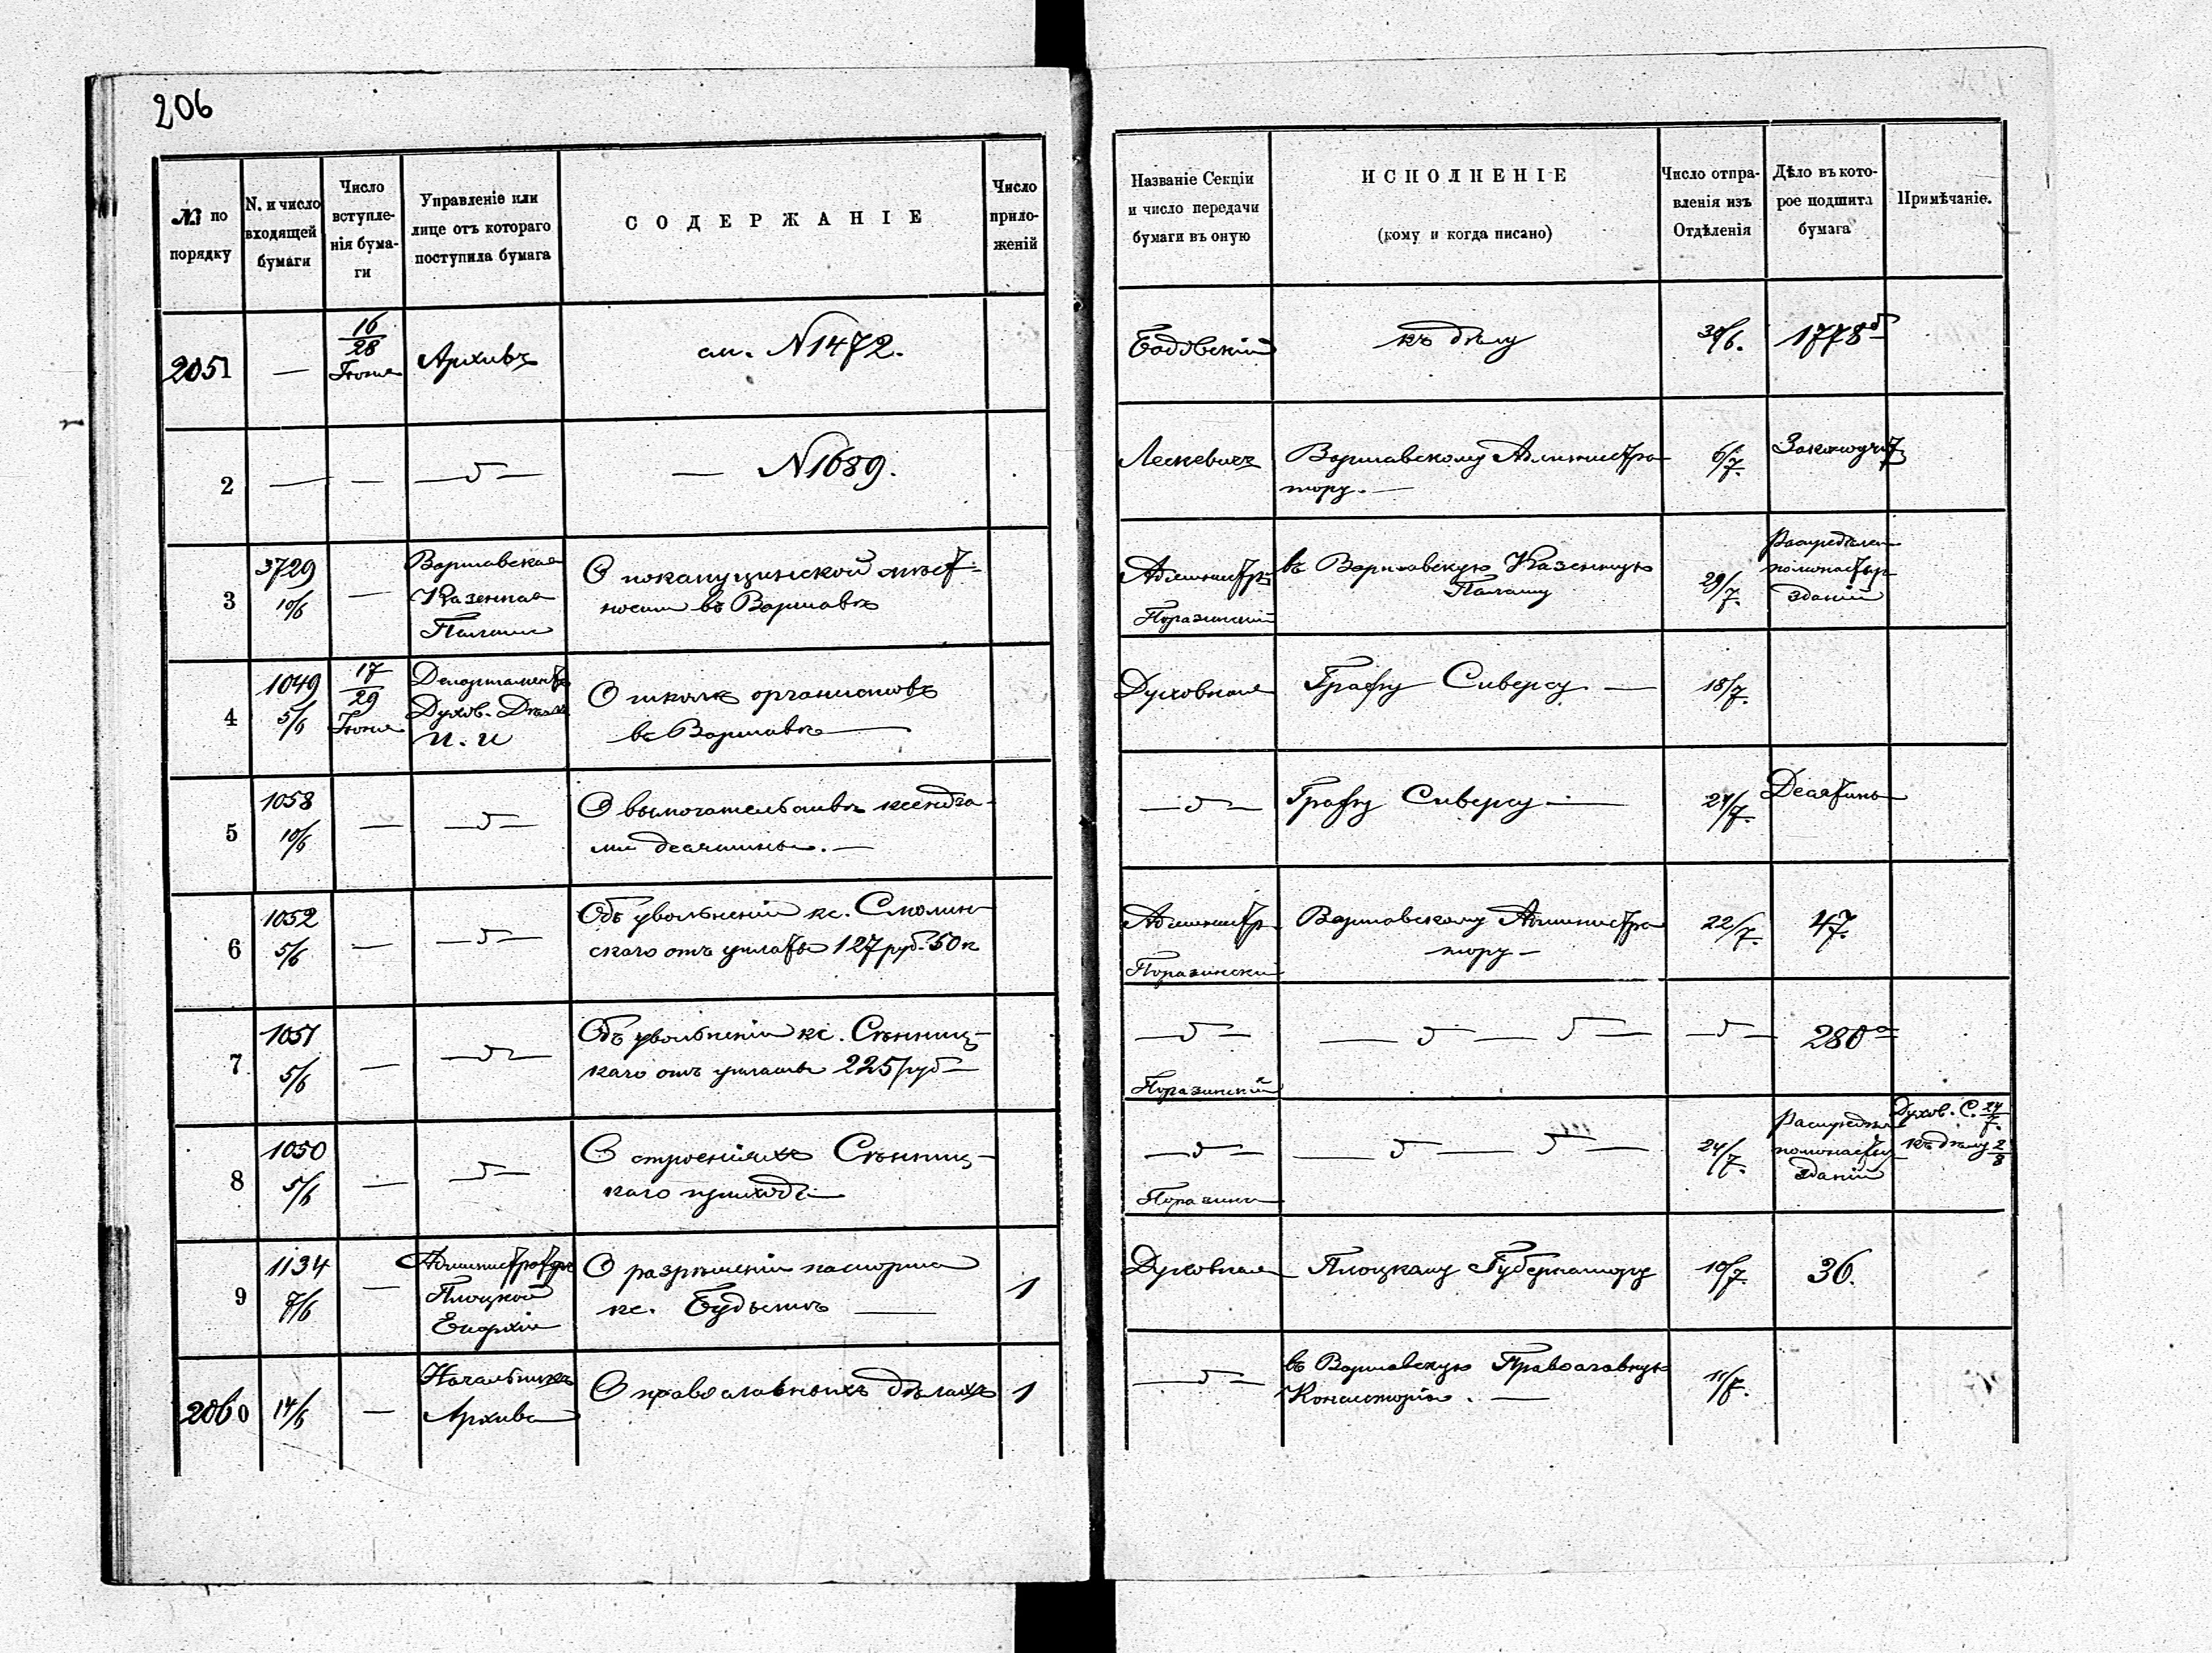 206
№ по порядку
N. и число входящей бумаги
Число вступле-нія бума-ги
Управленіе или лице отъ котораго поступила бумага
СОДЕРЖАНІЕ
Число прило-женій
Названіе Секціи и число передачи бумаги въ оную
ИСПОЛНЕНІЕ
(кому и когда писано)
Число отпра-вленія изъ Отдѣленія
Дѣло въ кото-рое подшита бумага
Примѣчаніе.
2051 — 16/28 Іюня Архивъ см. N1472. къ дѣлу 30/6. 1778
2 — — — N1689. Лескевичъ Варшавскому Администра
тору. — 6/7.
3 3729 10/6 — Варшавская Казенная Палата
О покапуцинской мѣст-
ности въ Варшавѣ
Администр. Поразинскій
въ Варшавскую Казенную
Палату
29/7.
Распредѣлен
помонастыр
зданій
4 1049 5/6 17/29 Іюня Департаментъ Духов. Дѣлъ И. И
О школѣ органистовъ
въ Варшавѣ —
Духовная
Графу Сиверсу. — 18/7.
5 1058 10/6 — —
О вымогательствѣ ксендза-
ми десятины. —
Графу Сиверсу — 27/7. Десятины
6 1052 5/6 — —
Объ увольненіи кс. Смолин
скаго отъ уплаты 127 руб. 50 к
Администр. Поразинскій
Варшавскому Администра
тору — 22/7. 47.
7 1051 5/6 — —
Объ увольненіи кс. Сѣнниц-
каго отъ уплаты 225 руб —
Поразинскій
280а
8 1050 5/6 — —
О строеніяхъ Сѣнниц-
каго прихода —
24/7.
Распредѣл
помонастыр
зданій
Духов. С. 24/7.
къ дѣлу 2/8
9 1134 7/6 — Администраторъ Плоцкой Епархіи
О разрѣшеніи паспорта
кс. —
1
Духовная Плоцкому Губернатору 10/7. 36.
2060 14/6 — Начальникъ Архива
О православныхъ дѣлахъ 1
въ Варшавскую Православную
Консисторію. — 11/7.